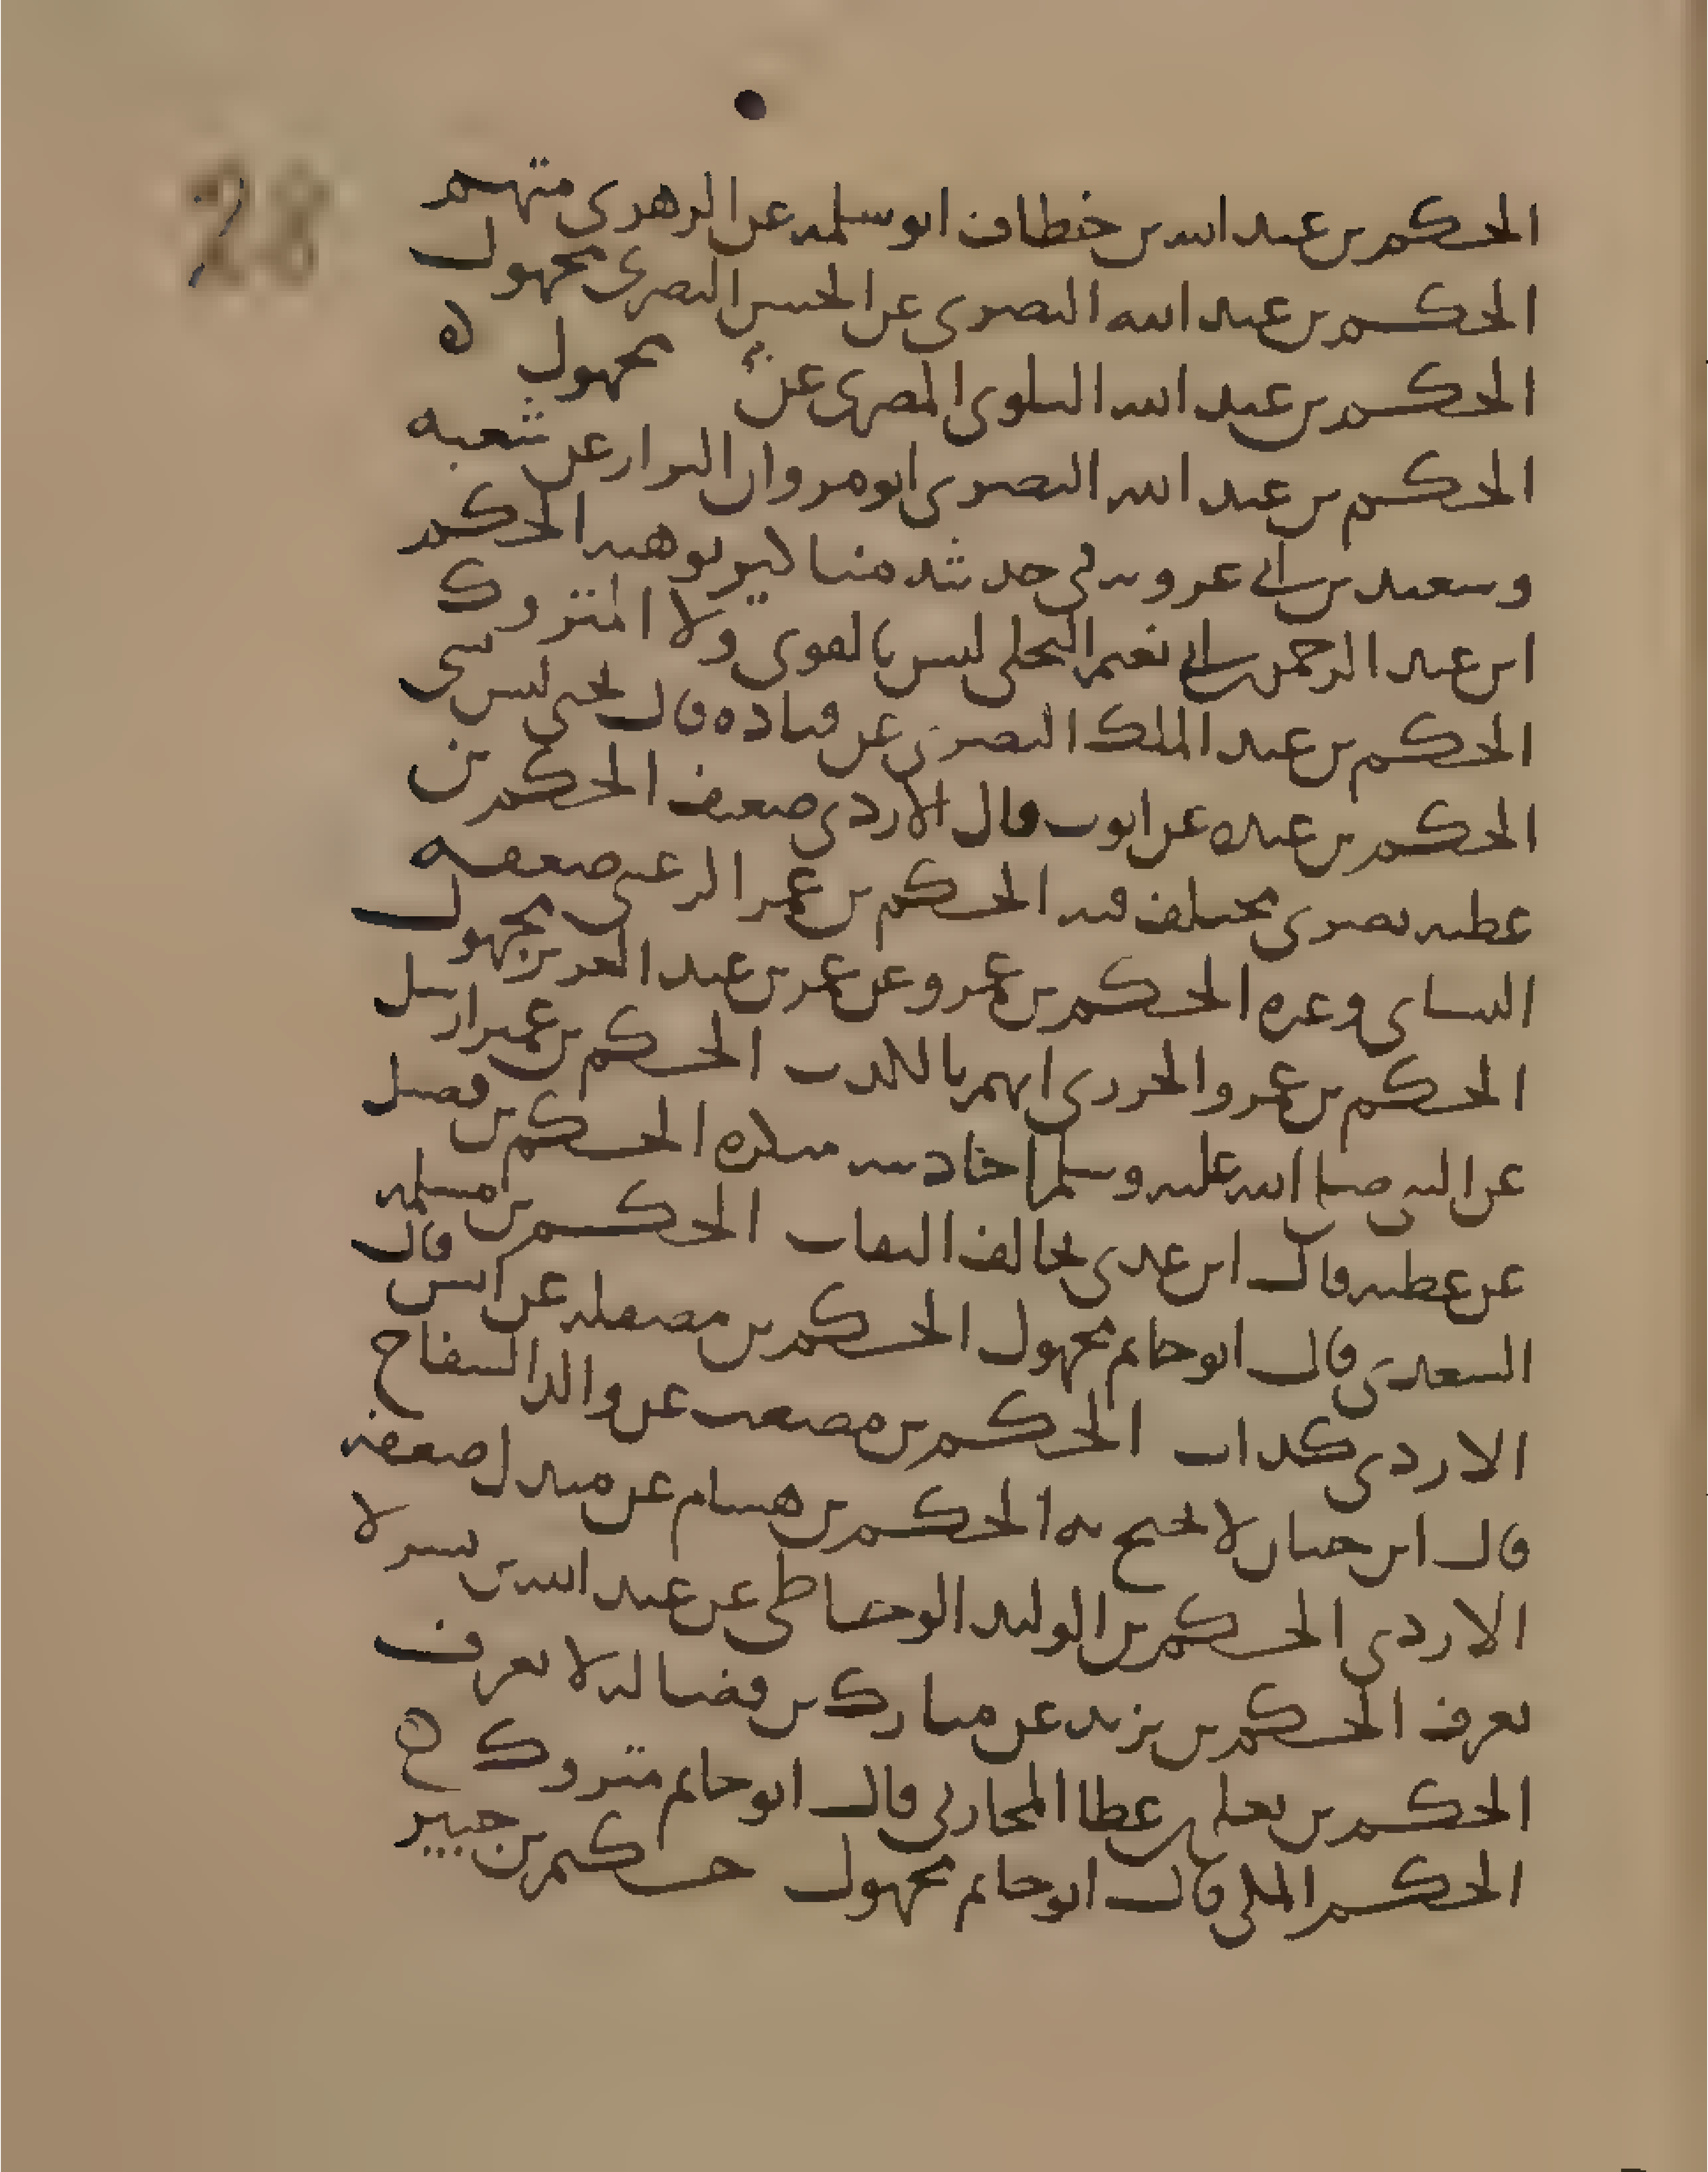 28
الحكم بن عبد الله بن خطاف ابو سلمه عن الزهرى متهم
الحكم بن عبد الله البصرى عن الحسن البصرى مجهول
الحكم بن عبد الله البلوى المصرى عن مجهول ه
الحكم بن عبد الله البصرى ابو مروان البزار عن شعبه
وسعيد بن ابي عروبه في حديثه مناكير توهيه الحكم
ابن عبد الرحمن بن ابي نعم البجلى ليس بالقوى ولا المتروك
الحكم بن عبد الملك البصرى عن قتاده قال يحيى ليس بشى
الحكم بن عبده عن ايوب قال الازدى ضعيف الحكم بن
عطيه بصرى مختلف فيه الحكم بن عمر الرعينى ضعفه
النساى وغيره الحكم بن عمرو عن عمر بن عبد العزيز مجهول
الحكم بن عمرو الجزرى اتهم بالكذب الحكم بن عمير ارسل
عن النبى صلى الله عليه وسلم احاديث منكره الحكم بن فضيل
عن عطيه قال ابن عدى يخالف الثقات الحكم بن مسلمه
السعدى قال ابو حاتم مجهول الحكم بن مصقله عن انس قال
الازدى كذاب الحكم بن مصعب عن والد السفاح
قال ابن حبان لا يحتج به الحكم بن هشام عن مندل ضعفه
الازدى الحكم بن الوليد الوحاظى عن عبد الله بن بسر لا
يعرف الحكم بن يزيد عن مبارك بن فضاله لا يعرف
الحكم بن يعلى بن عطا المحاربى قال ابو حاتم متروك ه
الحكم المكى قال ابو حاتم مجهول حكيم بن جبير